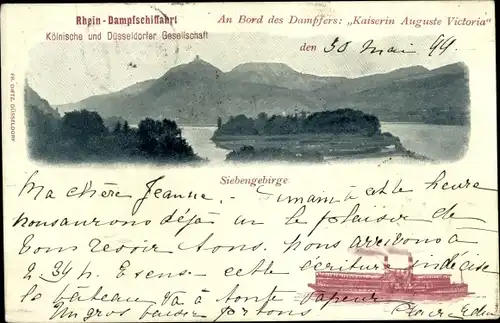 Rhein-Dampfschiffahrt
Kölnische und Düsseldorfer Gesellschaft
An Bord des Dampfers: „Kaiserin Auguste Victoria“
den 30 Mai 99
Siebengebirge
Ma chère Jeanne. à cette heure
nous aurons déjà eu le plaisir de
vous revoir tous. Nous arrivons à
2.34 h. cette écriture indécise
le bateau va à toute vapeur
Un gros baiser